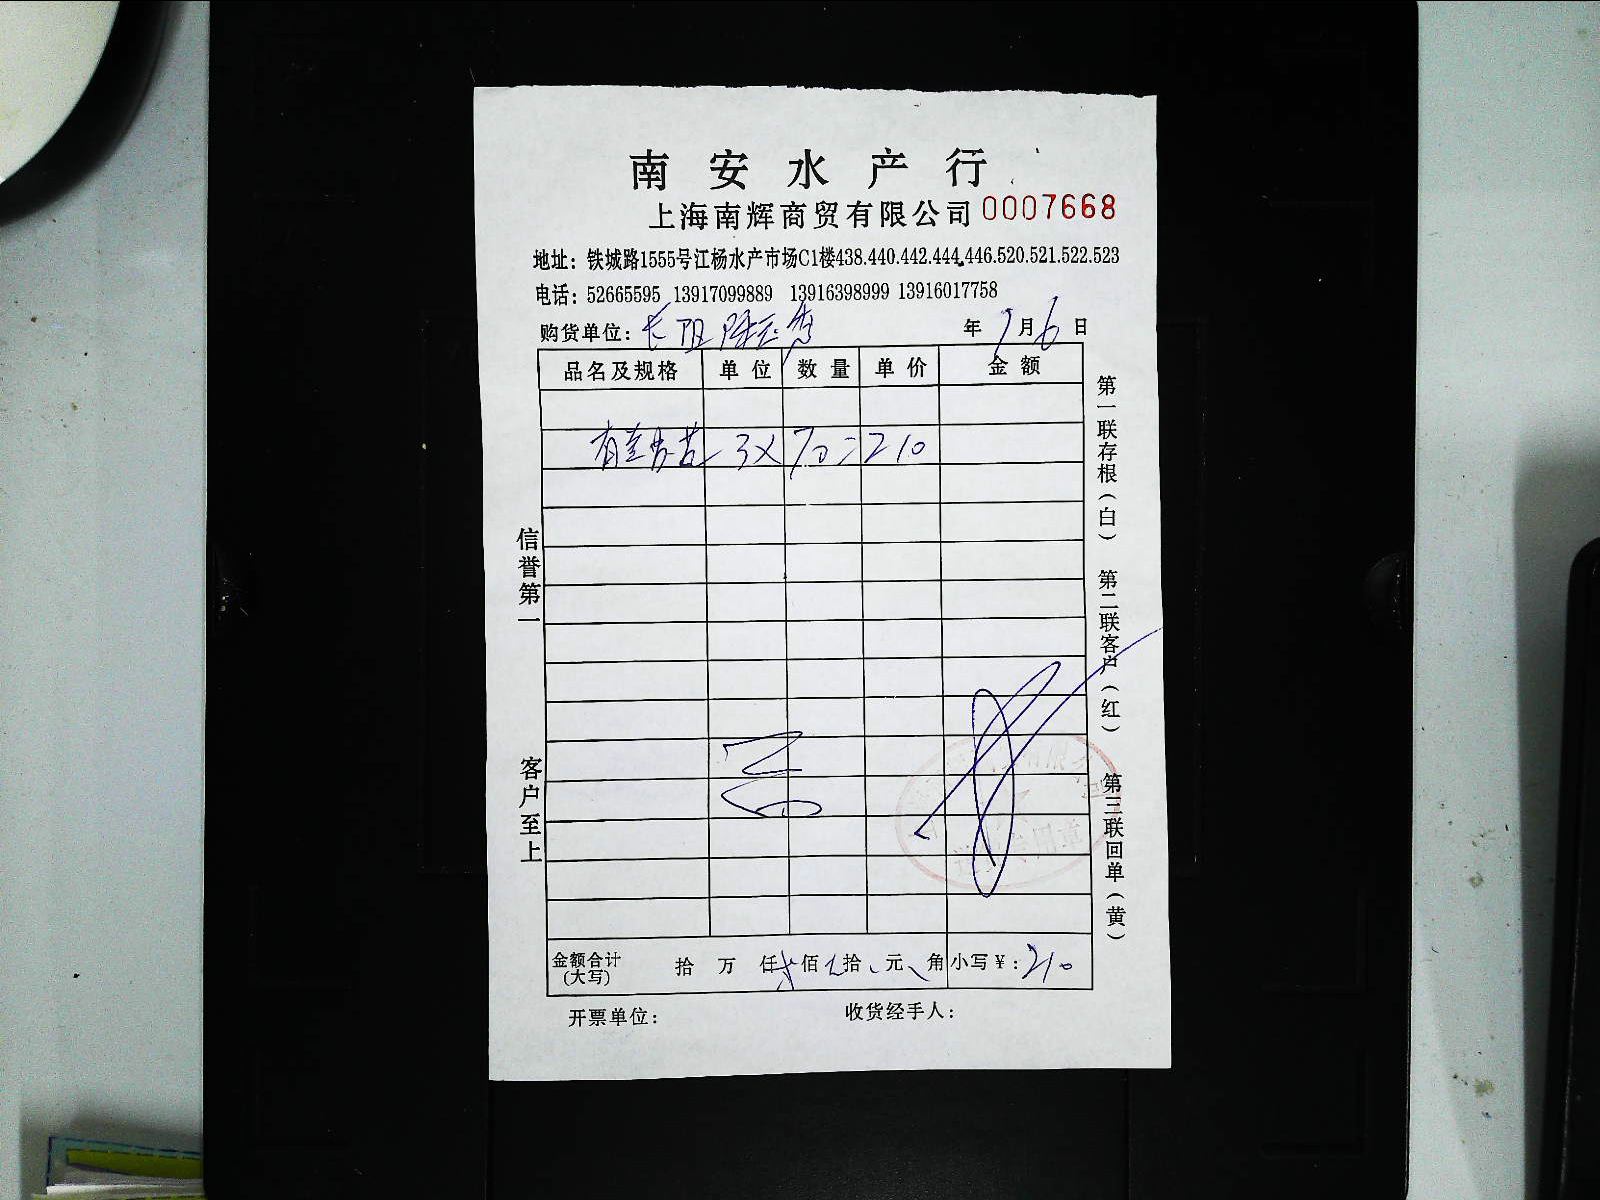 南安水产行
上海南辉商贸有限公司 0007668
地址：铁城路1555号江杨水产市场C1楼438.440.442.444.446.520.521.522.523
电话：52665595 13917099889 13916398999 13916017758
购货单位：长阳 年 9月6日
品名及规格 单位 数量 单价 金额
有 3X70=210
金额合计（大写） 拾 万 仟 贰佰 拾 元 角 小写￥：210
开票单位： 收货经手人：
信誉第一 客户至上
第一联存根（白） 第二联客户（红） 第三联回单（黄）